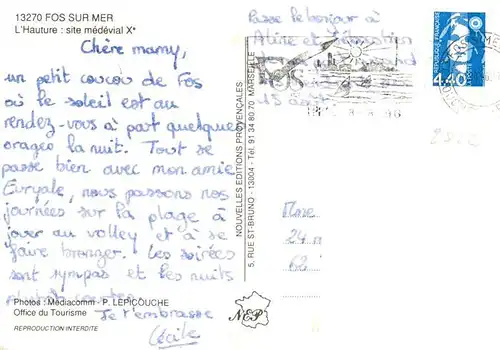 13270 FOS SUR MER
L'Hauture : site médévial X*
Chère mamy,
un petit coucou de Fos
où le soleil est au
rendez-vous à part quelques
orages la nuit. Tout se
passe bien avec mon amie
Euryale, nous passons nos
journées sur la plage à
jouer au volley et à se
faire bronzer. Les soirées
sont sympas et les nuits
Photos : Médiacomm - P. LEPICOUCHE
Office du Tourisme
Je t'embrasse
REPRODUCTION INTERDITE
Cécile
NOUVELLES EDITIONS PROVENÇALES
5, RUE ST-BRUNO - 13004 - Tél. 91 34 80 70 MARSEILLE
NEP
Passe le bonjour à
Aline et
FOS
RÉPUBLIQUE FRANÇAISE
4,40
Mme
24
62